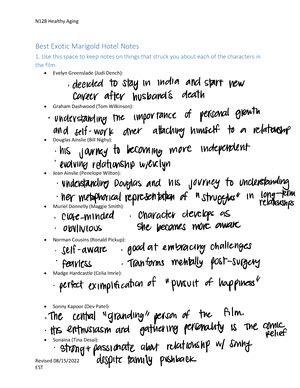 N128 Healthy Aging
Best Exotic Marigold Hotel Notes
1. Use this space to keep notes on things that struck you about each of the characters in
the film.
• Evelyn Greenslade (Judi Dench):
· decided to stay in India and start new
career after husband's death
• Graham Dashwood (Tom Wilkinson):
· understanding the importance of personal growth
and self-work over attaching himself to a relationship
• Douglas Ainslie (Bill Nighy):
· his journey to becoming more independent
· evolving relationship w/evelyn
• Jean Ainslie (Penelope Wilton):
· understanding Douglas and his journey to understanding
· her metaphorical representation of "struggles" in long-term
relationships
• Muriel Donnelly (Maggie Smith):
· close-minded · Character develops as
· oblivious she becomes more aware
• Norman Cousins (Ronald Pickup):
· self-aware · good at embracing challenges
· fearless · Tranforms mentally post-surgery
• Madge Hardcastle (Celia Imrie):
· perfect exemplification of "pursuit of happiness"
• Sonny Kapoor (Dev Patel):
· The central "grounding" person of the film
· His enthusiasm and gathering personality is the comic
relief
• Sunaina (Tina Desai):
· strong + passionate about relationship w/ sonny
despite family pushback
Revised 08/15/2022
EST